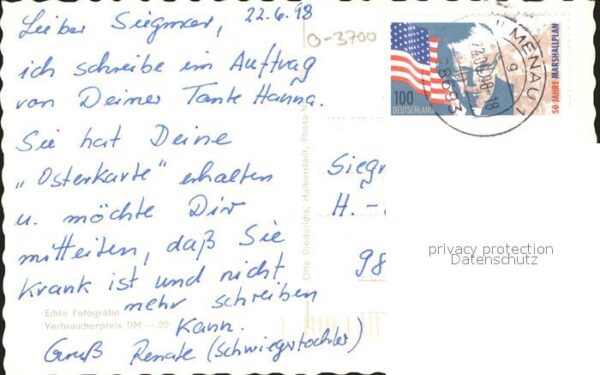 Lieber Siegmar, 22.6.98
ich schreibe im Auftrag
von Deiner Tante Hanna.
Sie hat Deine
„Osterkarte" erhalten
u. möchte Dir
mitteilen, daß Sie
krank ist und nicht
mehr schreiben
kann.
Gruß Renate (Schwiegertochter)
Echte Fotografie
Verbraucherpreis DM –.20
Otto Diederichs, Halberstadt,
0-3700
100
DEUTSCHLAND
50 JAHRE MARSHALLPLAN
MENAU 1
98693
Siegr
H. -
98
privacy protection
Datenschutz